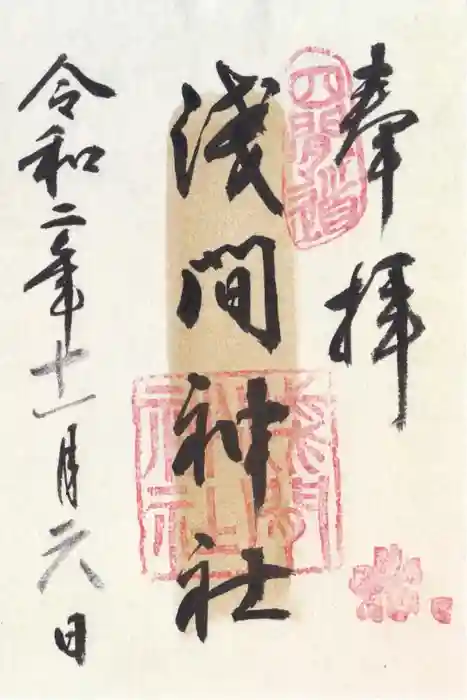 奉拝
四間道
浅間神社
令和二年十一月六日